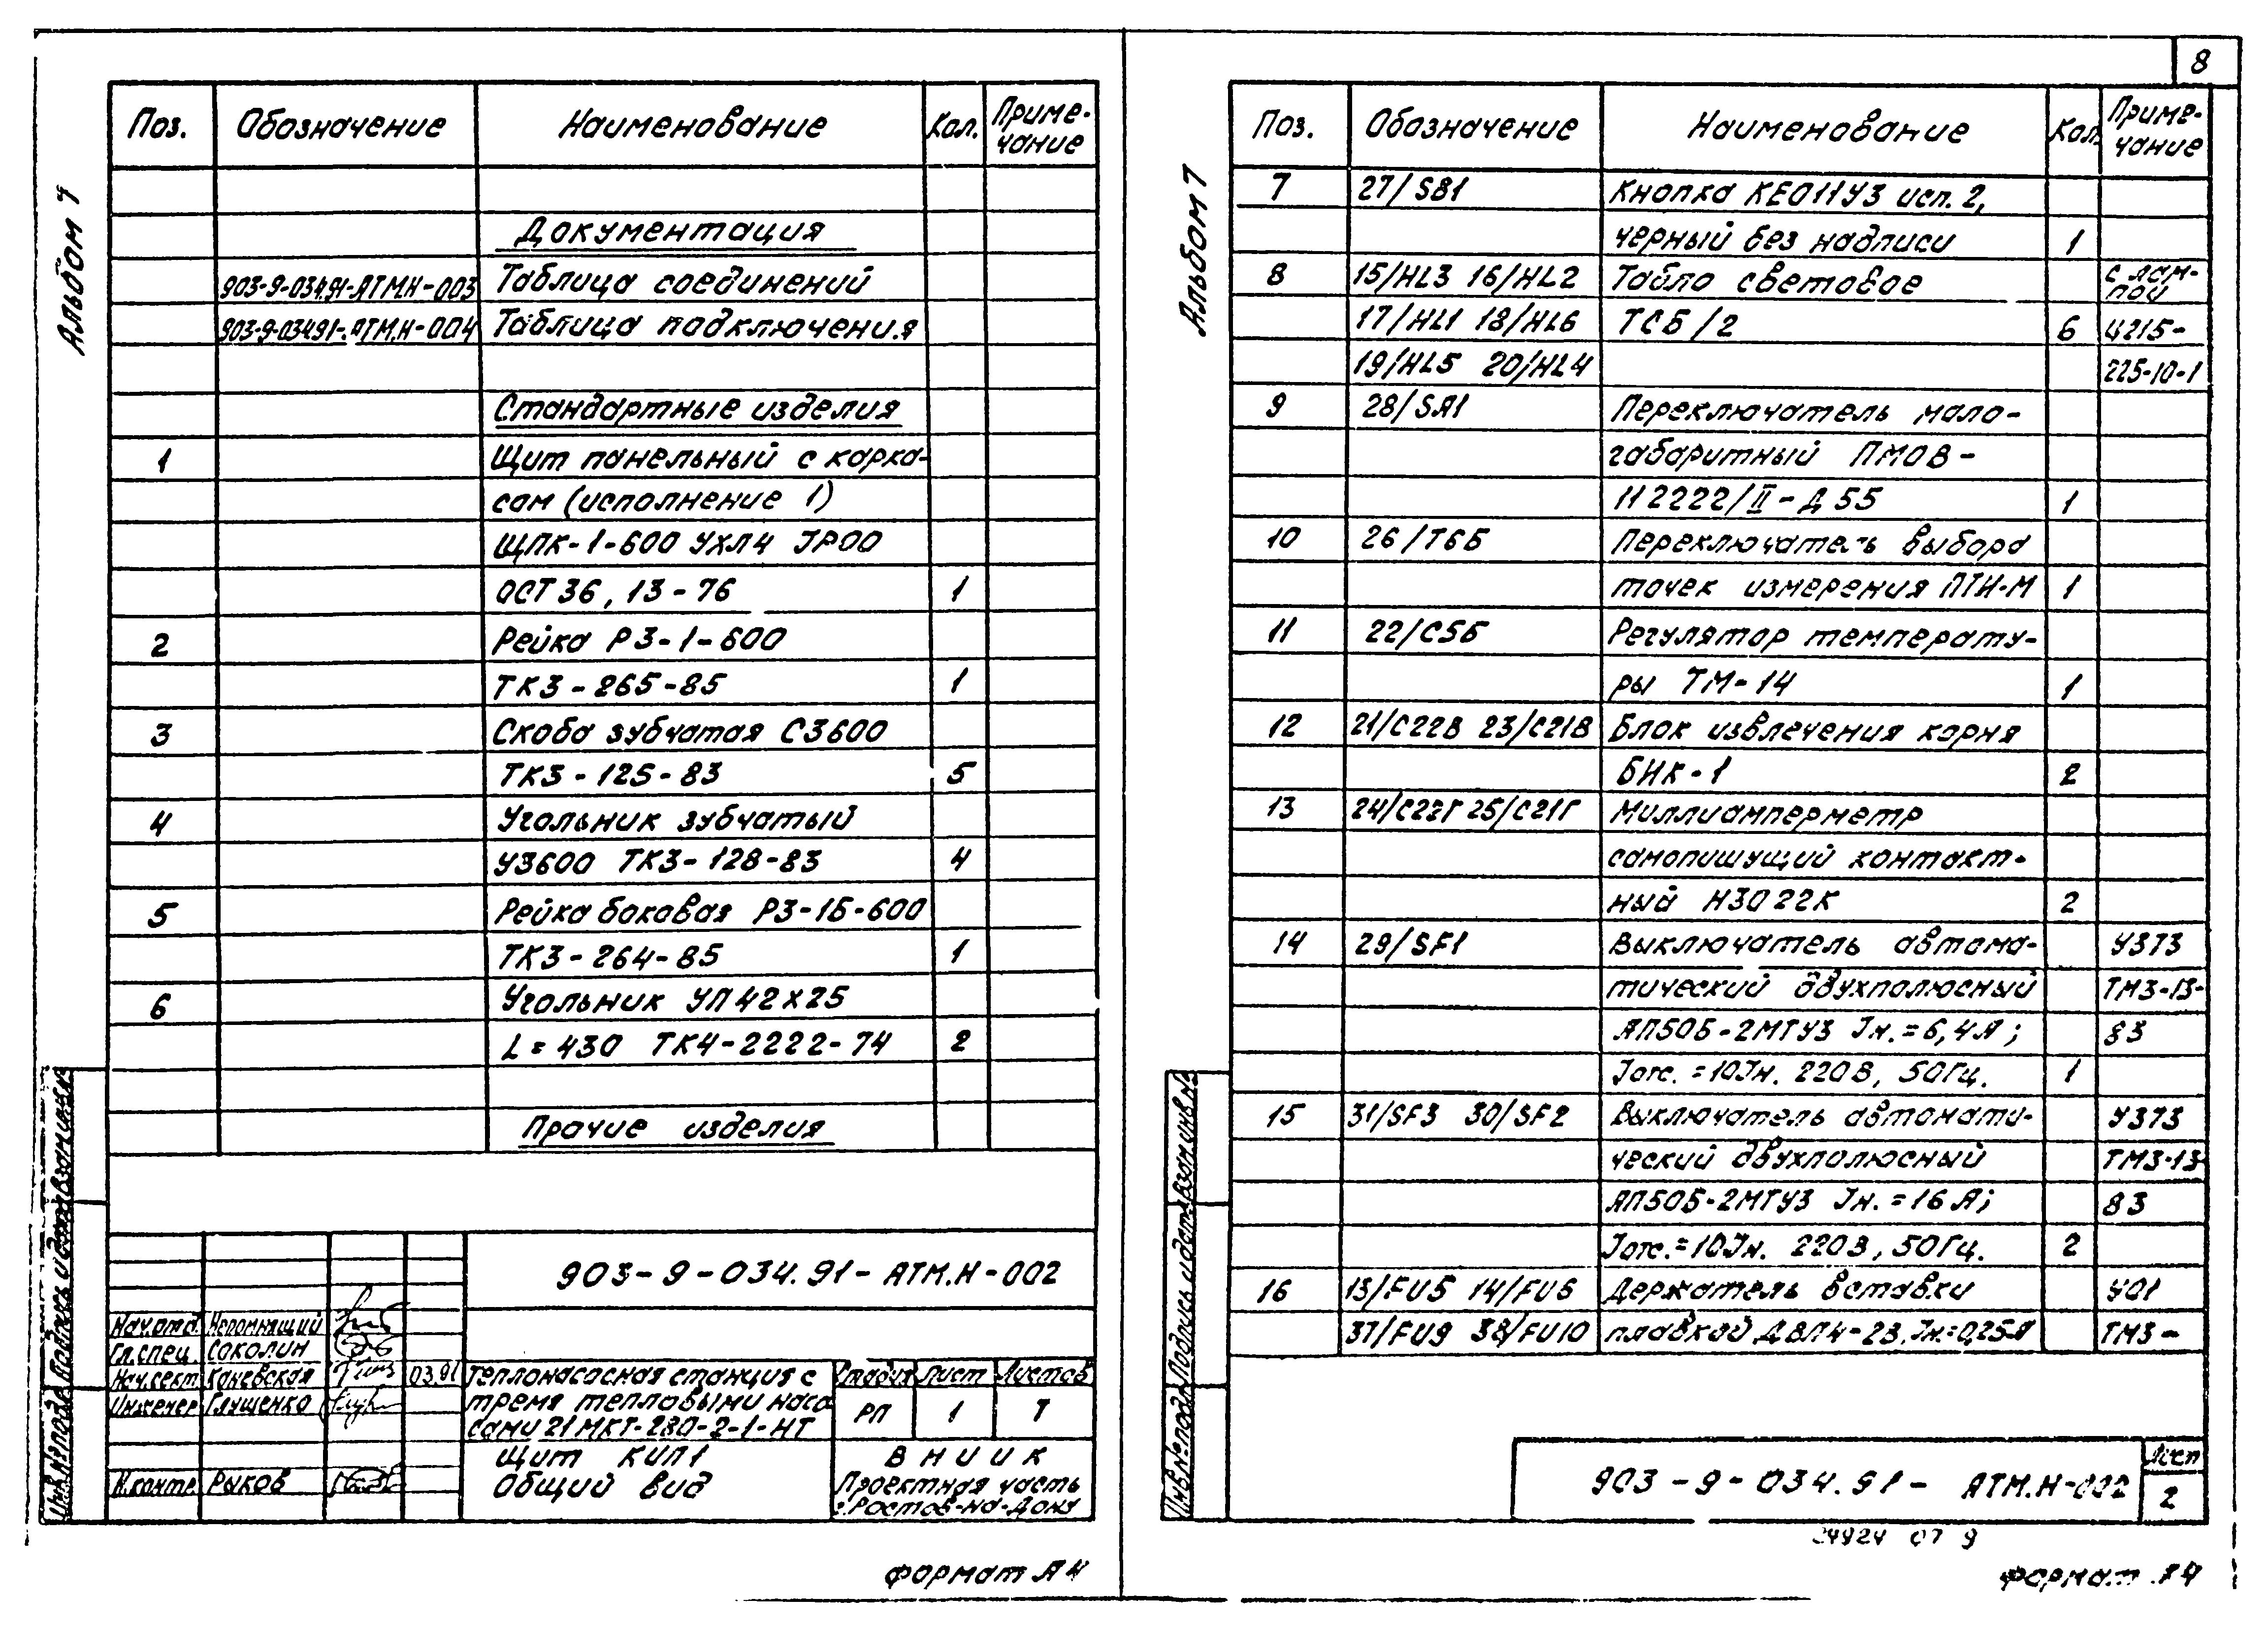 8
Альбом 7
Поз. Обозначение Наименование Кол. Приме-
чание
Документация
903-9-034.91-АТМ.Н-003 Таблица соединений
903-9-034.91-АТМ.Н-004 Таблица подключения
Стандартные изделия
1 Щит панельный с карка-
сом (исполнение 1)
ЩПК-1-600 УХЛ4 IP00
ОСТ 36.13-76 1
2 Рейка Р3-1-600
ТК3-265-85 1
3 Скоба зубчатая СЗ600
ТК3-125-83 5
4 Угольник зубчатый
УЗ600 ТК3-128-83 4
5 Рейка боковая Р3-1Б-600
ТК3-264-85 1
6 Угольник УП 42х25
L=430 ТК4-2222-74 2
Прочие изделия
903-9-034.91-АТМ.Н-002
Нач.отд. Непомнящий
Гл.спец. Соколин
Нач.сект. Каневская 03.91
Инженер Глущенко
Н.контр. Рыков
Теплонасосная станция с
тремя тепловыми насо
сами 21МКТ-280-2-1-НТ
Стадия Лист Листов
РП 1 7
Щит КИП1
Общий вид
ВНИИК
Проектная часть
г.Ростов-на-Дону
Инв.№подл. Подпись и дата Взам.инв.№
Формат А4
Альбом 7
Поз. Обозначение Наименование Кол. Приме-
чание
7 27/SB1 Кнопка КЕ011У3 исп. 2,
черный без надписи 1
8 15/HL3 16/HL2 Табло световое с лам-
пой
17/HL1 18/HL6 ТСБ/2 6 Ц215-
19/HL5 20/HL4 225-10-1
9 28/SA1 Переключатель мало-
габаритный ПМОВ-
112222/II-Д55 1
10 26/Т6Б Переключатель выбора
точек измерения ПТИ-М 1
11 22/С5Б Регулятор температу-
ры ТМ-14 1
12 21/С22В 23/С21В Блок извлечения корня
БИК-1 2
13 24/С22Г 25/С21Г Миллиамперметр
самопишущий контакт-
ный Н3022К 2
14 29/SF1 Выключатель автома- У373
тический двухполюсный ТМ3-13-
АП50Б-2МТУ3 Iн.=6,4А; 83
Iотс.=10Iн. 220В, 50Гц. 1
15 31/SF3 30/SF2 Выключатель автомати- У373
ческий двухполюсный ТМ3-13-
АП50Б-2МТУ3 Iн.=16А; 83
Iотс.=10Iн. 220В, 50Гц. 2
16 13/FU5 14/FU6 Держатель вставки У01
37/FU9 38/FU10 плавкой ДВП4-2В. Iн.=0,25А ТМ3-
Инв.№подл. Подпись и дата Взам.инв.№
903-9-034.91- АТМ.Н-002 Лист
2
24924 07 9
Формат А4